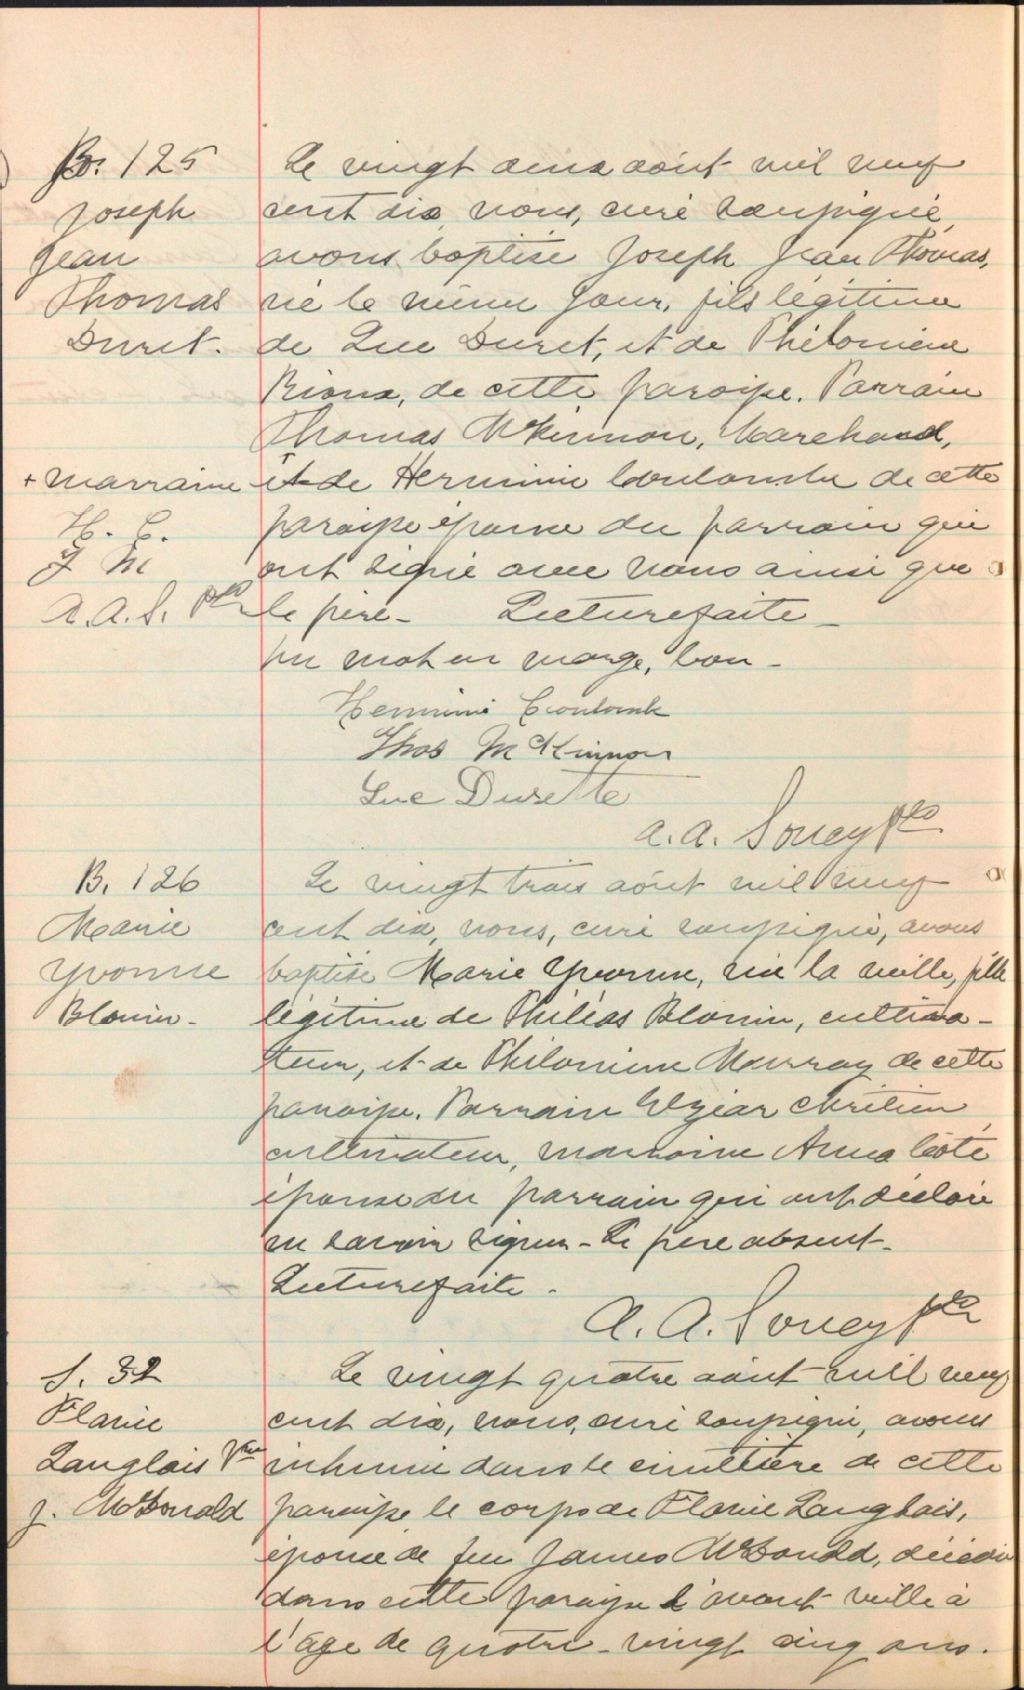 B. 125
Joseph
Jean
Thomas
Duret.
+ marraine
H. C.
T M
A. A. S. Ptre
Le vingt deux août mil neuf
cent dix, nous, curé soussigné,
avons baptisé Joseph Jean Thomas,
né le même jour, fils légitime
de Luc Duret, et de Philomène
Rioux, de cette paroisse. Parrain
Thomas McKinnon, Marchand,
et de Herminie Coulombe de cette
paroisse épouse du parrain qui
ont signé avec nous ainsi que
le père - Lecture faite -
un mot en marge, bon -
Herminie Coulombe
Thos McKinnon
Luc Durette
A. A. Soucy Ptre
B. 126
Marie
Yvonne
Blouin -
Le vingt trois août mil neuf
cent dix, nous, curé soussigné, avons
baptisé Marie Yvonne, née la veille, fille
légitime de Philéas Blouin, cultiva-
teur, et de Philomène Murray de cette
paroisse. Parrain Elzéar Chrétien
cultivateur, marraine Anna Côté
épouse du parrain qui ont déclaré
ne savoir signer - Le père absent -
Lecture faite .
A. A. Soucy Ptre
S. 32
Flavie
Langlois Vve
J. McDonald
Le vingt quatre août mil neuf
cent dix, nous, curé soussigné, avons
inhumé dans le cimetière de cette
paroisse le corps de Flavie Langlois,
épouse de feu James McDonald, décédée
dans cette paroisse l'avant veille à
l'âge de quatre-vingt cinq ans.